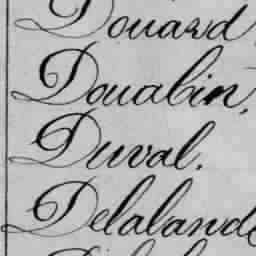 Douard
Douabin,
Duval.
Delalande